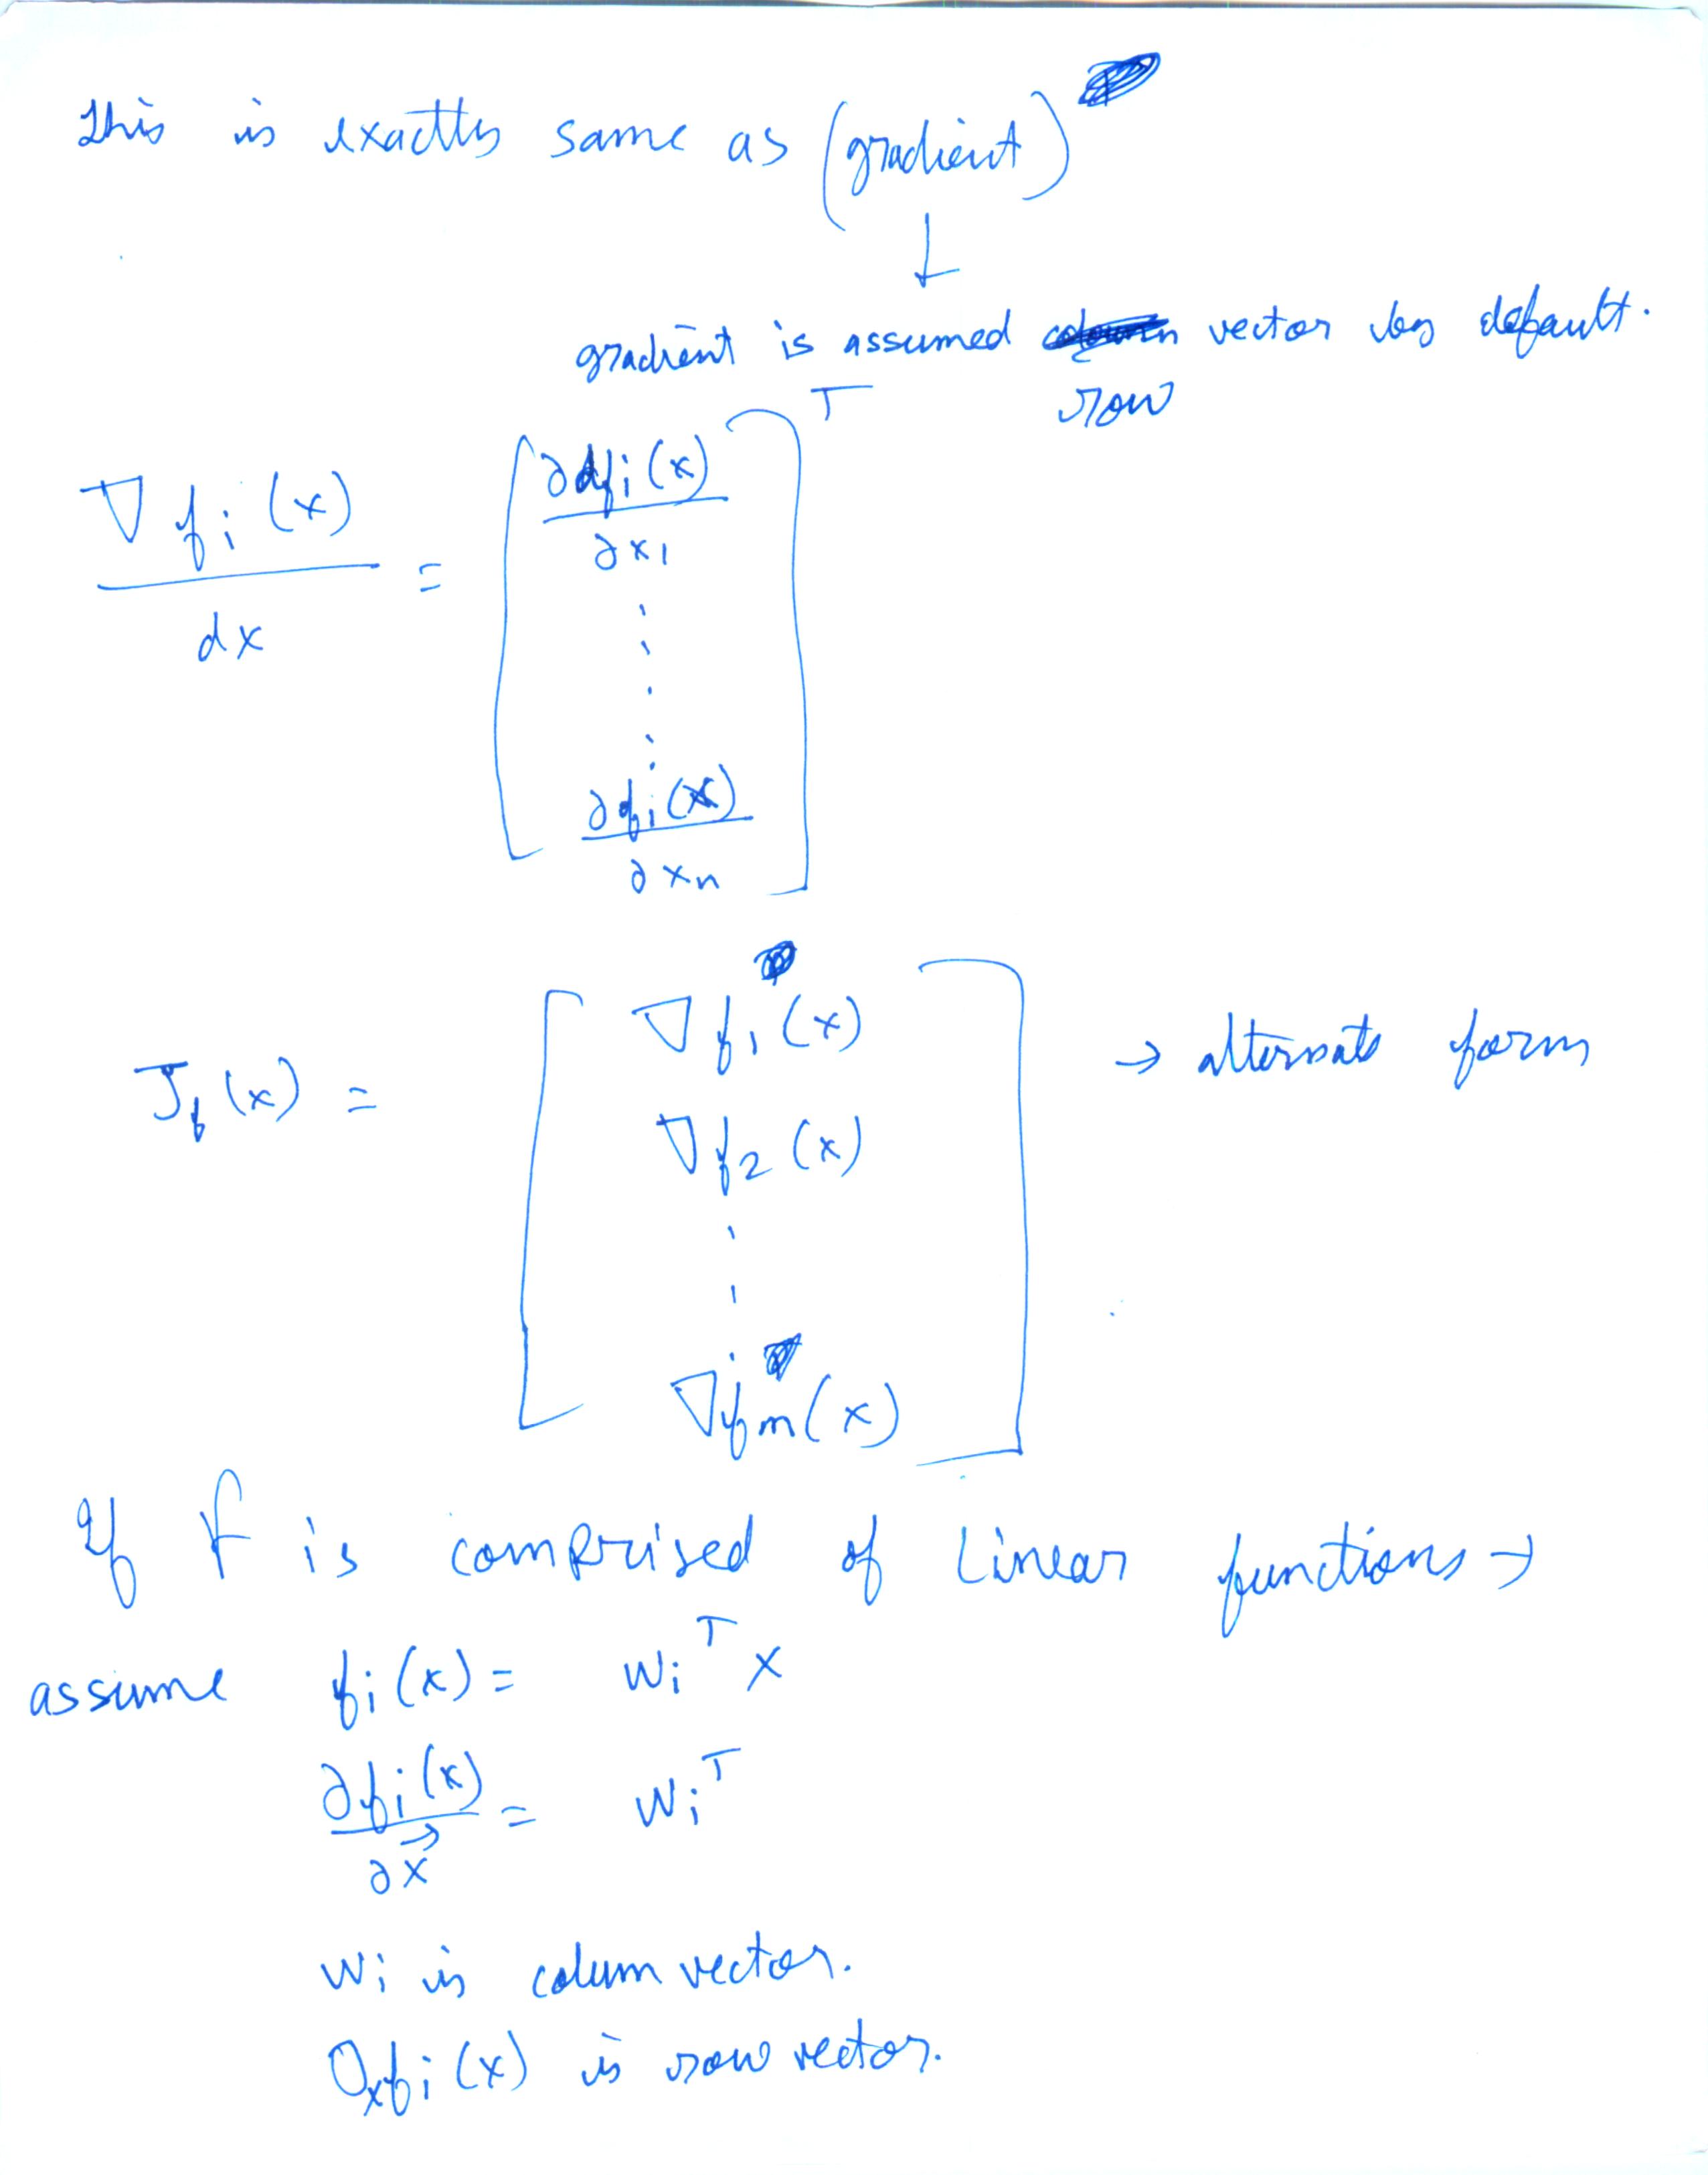 This is exactly same as (gradient)
↓
gradient is assumed vector by default.
row
∇ fi (x) / dx = [ ∂fi (x) / ∂x1 ⋮ ∂fi (x) / ∂xn ]^T
Jf (x) = [ ∇ f1 (x) → alternate form
∇ f2 (x)
⋮
∇ fm (x) ]
If f is comprised of linear functions →
assume fi (x) = wi^T x
∂fi (x) / ∂x⃗ = wi^T
wi is colum vector.
∇x fi (x) is row vector.